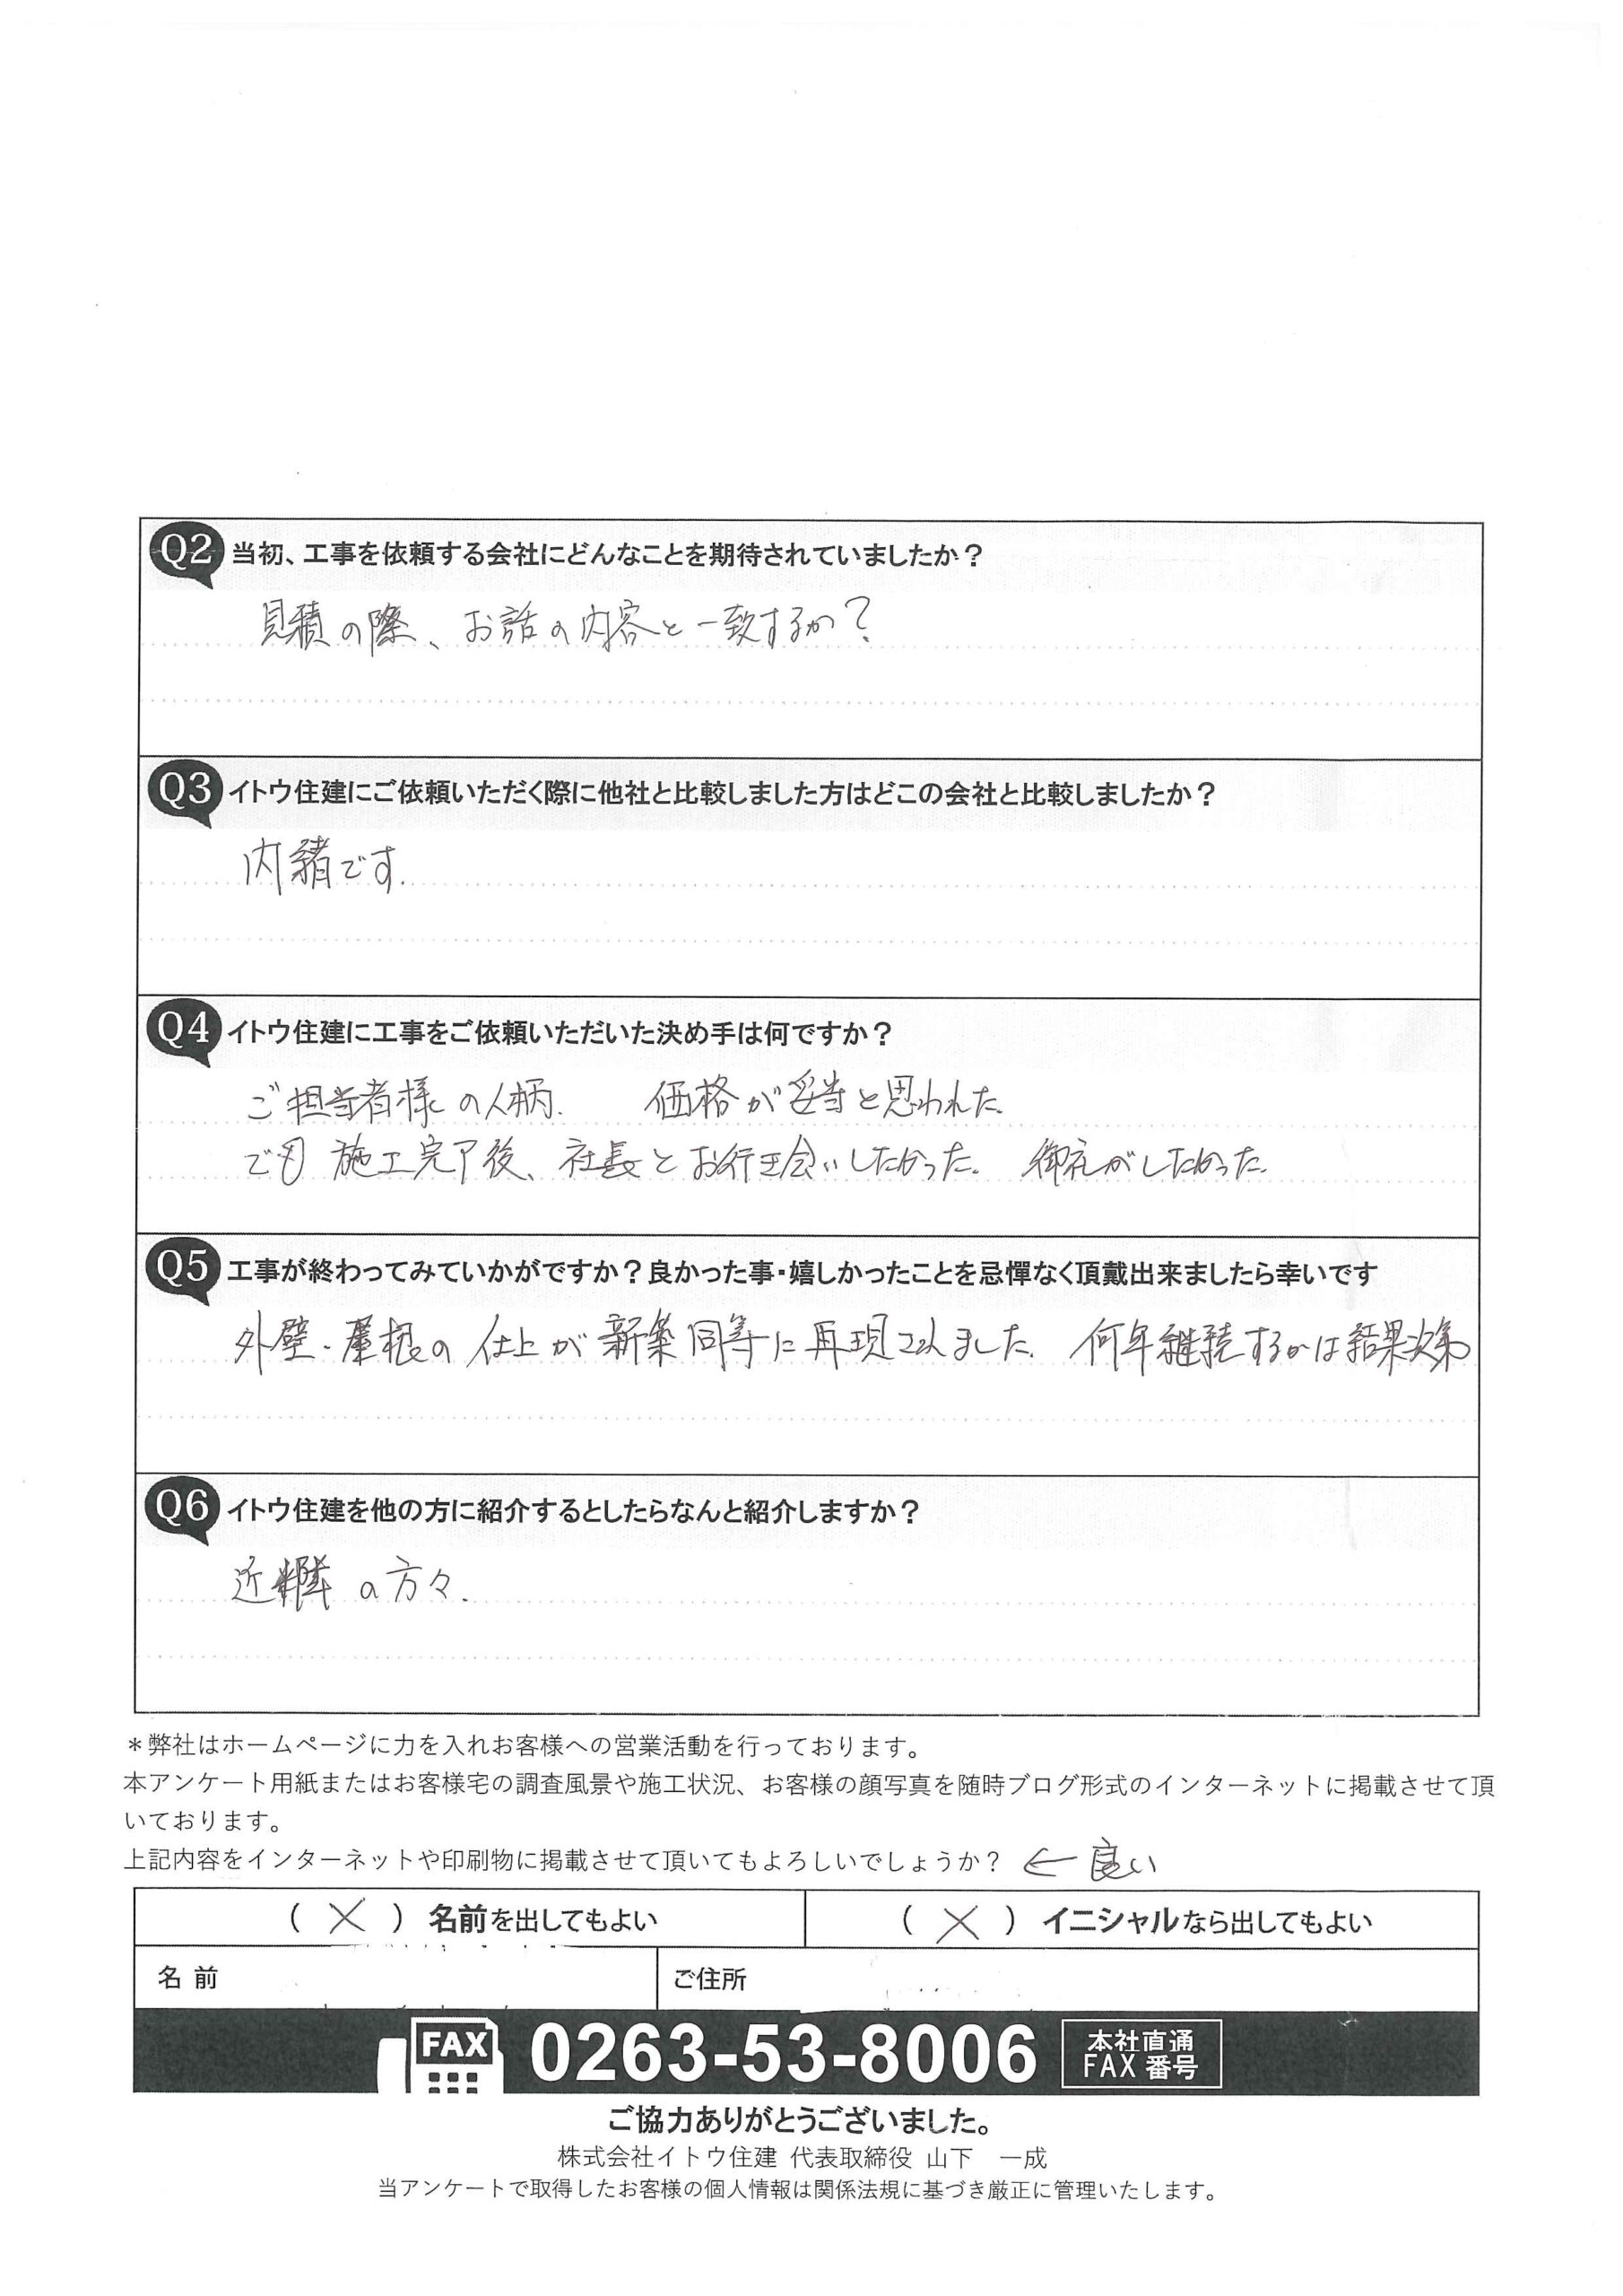 Q2 当初、工事を依頼する会社にどんなことを期待されていましたか？
見積の際、お話の内容と一致するか？
Q3 イトウ住建にご依頼いただく際に他社と比較しました方はどこの会社と比較しましたか？
内緒です.
Q4 イトウ住建に工事をご依頼いただいた決め手は何ですか？
ご担当者様の人柄. 価格が妥当と思われた.
でも 施工完了後、社長とお行き会いしたかった。 御礼がしたかった.
Q5 工事が終わってみていかがですか？良かった事・嬉しかったことを忌憚なく頂戴出来ましたら幸いです
外壁・屋根の仕上が新築同等に再現されました. 何年継続するかは結果次第
Q6 イトウ住建を他の方に紹介するとしたらなんと紹介しますか？
近隣の方々.
＊弊社はホームページに力を入れお客様への営業活動を行っております。
本アンケート用紙またはお客様宅の調査風景や施工状況、お客様の顔写真を随時ブログ形式のインターネットに掲載させて頂
いております。
上記内容をインターネットや印刷物に掲載させて頂いてもよろしいでしょうか？ ← 良い
（ × ）名前を出してもよい （ × ）イニシャルなら出してもよい
名 前 ご住所
FAX 0263-53-8006 本社直通
FAX 番号
ご協力ありがとうございました。
株式会社イトウ住建 代表取締役 山下　一成
当アンケートで取得したお客様の個人情報は関係法規に基づき厳正に管理いたします。